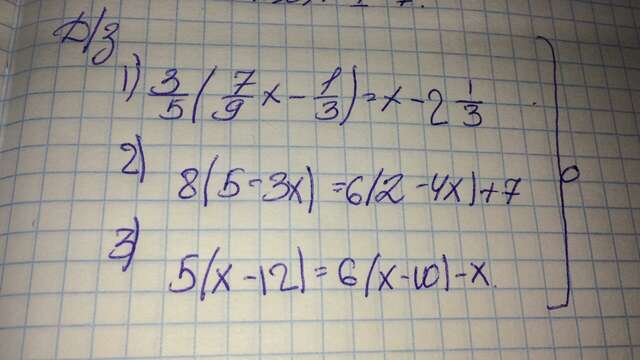 Д/з
1) 3/5 ( 7/9 x - 1/3 ) = x - 2 1/3
2) 8(5 - 3x) = 6(2 - 4x) + 7
3) 5(x - 12) = 6(x - 10) - x.